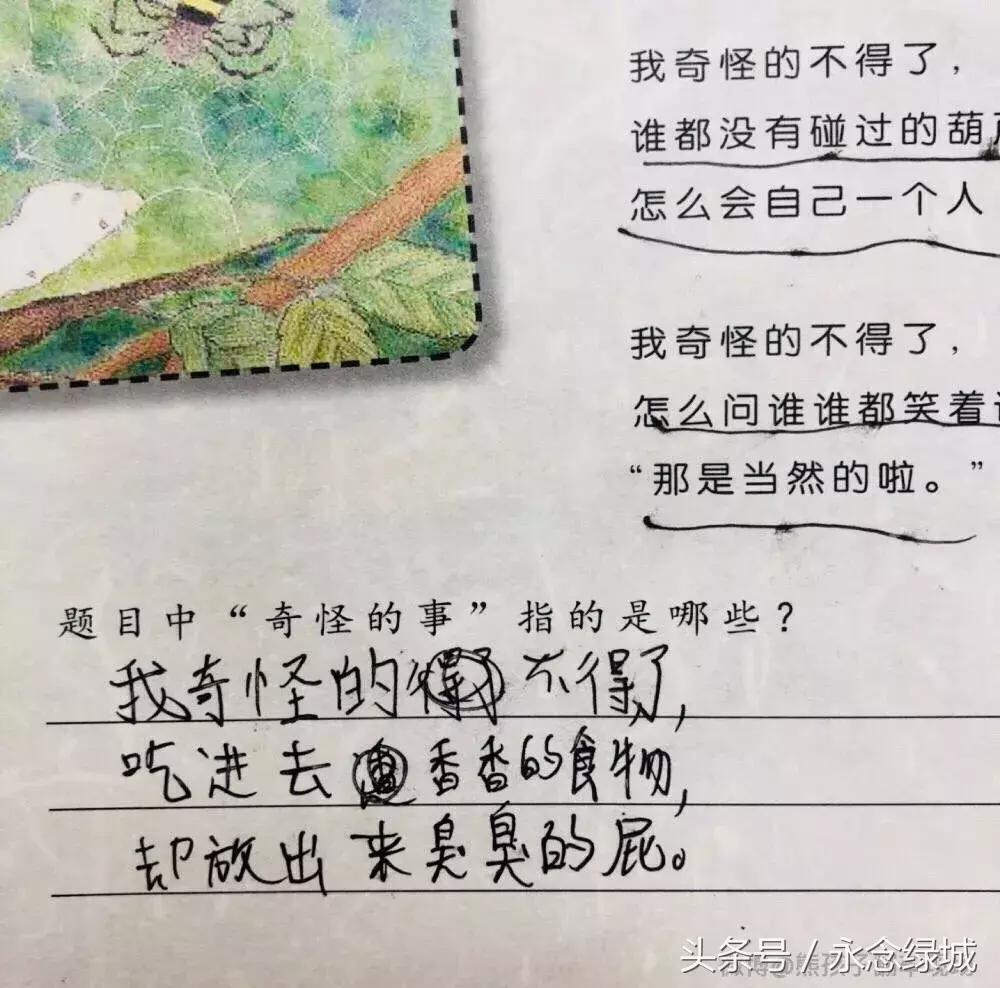 我奇怪的不得了，
谁都没有碰过的葫
怎么会自己一个人
我奇怪的不得了，
怎么问谁谁都笑着
“那是当然的啦。”
题目中“奇怪的事”指的是哪些？
我奇怪的不得了，
吃进去香香的食物，
却放出来臭臭的屁。
头条号 / 永念绿城